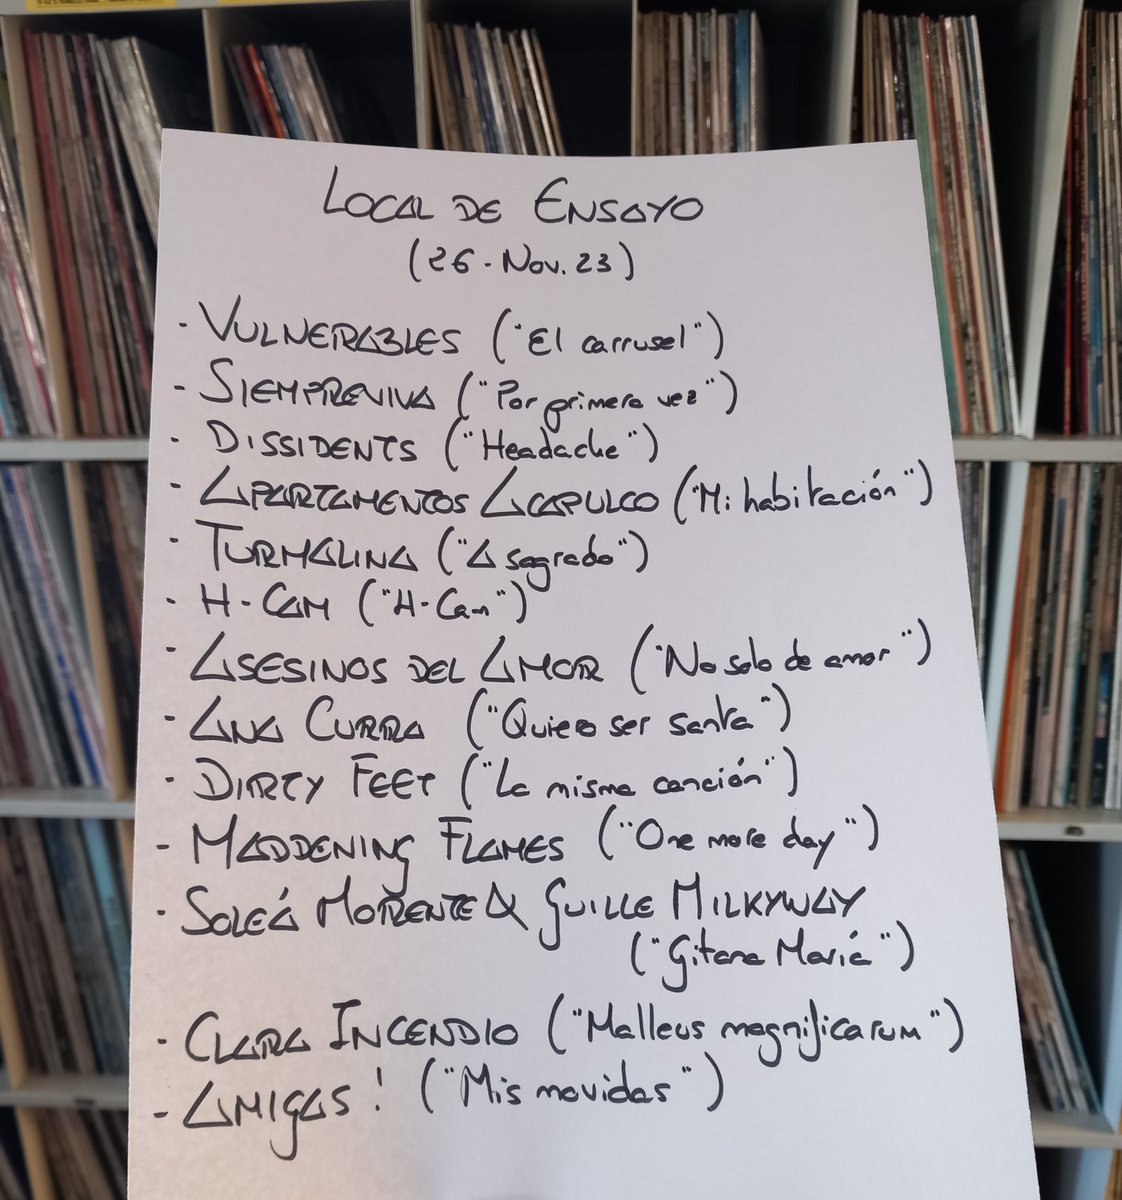 LOCAL DE ENSAYO
(26-Nov.23)
- VULNERABLES ("El carrusel")
- SIEMPREVIVA ("Por primera vez")
- DISSIDENTS ("Headache")
- APARTAMENTOS ACAPULCO ("Mi habitación")
- TURMALINA ("A sagrado")
- H-CAM ("H-Cam")
- ASESINOS DEL AMOR ("No solo de amor")
- ANA CURRA ("Quiero ser santa")
- DIRTY FEET ("La misma canción")
- MADDENING FLAMES ("One more day")
- SOLEÁ MORENTE & GUILLE MILKYWAY
("Gitana María")
- CLARA INCENDIO ("Malleus magnificarum")
- AMIGAS! ("Mis movidas")